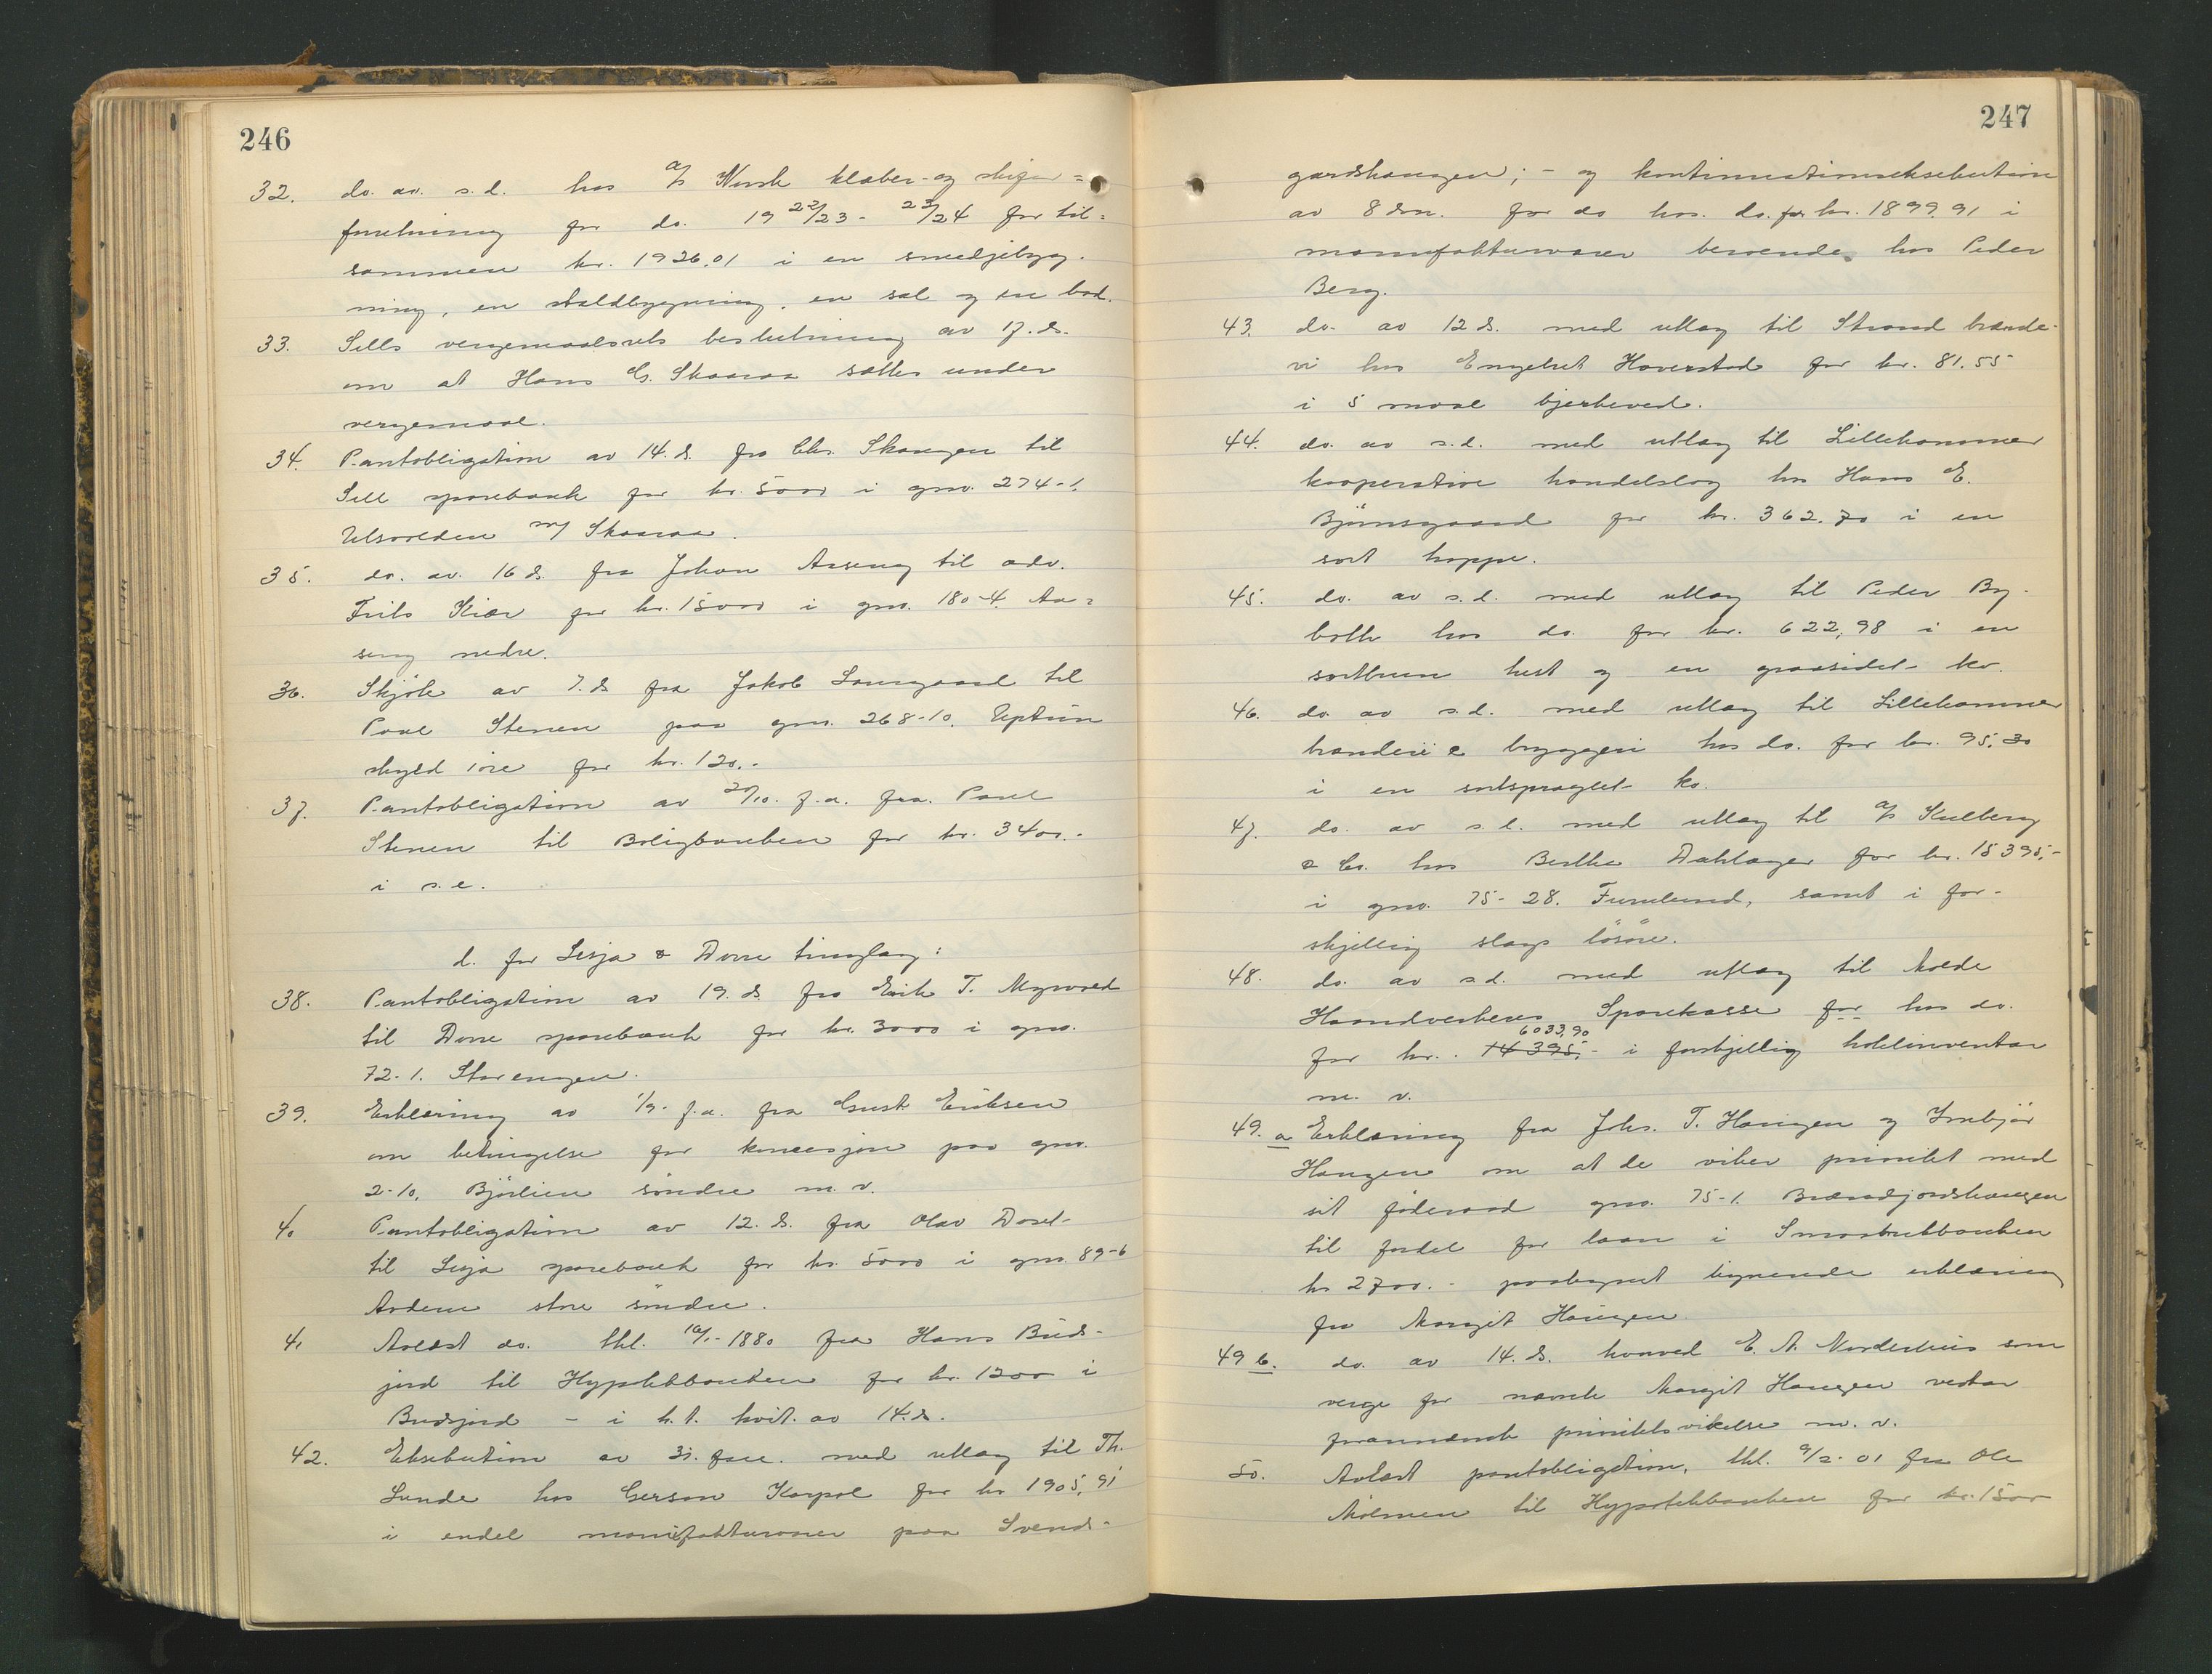 246
32. do. av. s.d. hos A/S Norsk kleber- og skifer=
forretning for do. 19 22/23 - 23/24 for til=
sammen kr. 1926.01 i en smedjebyg-
ning, en staldbygning, en sal og en bod.
33. Sells vergemaalsrets beslutning av 17. ds.
om at Hans G. Skaaraa sættes under
vergemaal.
34. Pantobligation av 14. ds. fra Chr. Skaugen til
Sell sparebank for kr. 5000 i gno. 274-1.
Ulsvolden m/ Skaaraa.
35. do. av. 16 ds. fra Johan Aaseng til adv.
Frits Kiær for kr. 15000 i gno. 180-4. Aa=
seng nedre.
36. Skjöte av 7. ds fra Jakob Lomgaard til
Paal Stenen paa gno. 268-10.
skyld 1 øre for kr. 120.-
37. Pantobligation av 20/10. f.a. fra Paal
Stenen til Boligbanken for kr. 3400.-
i s.e.
d. for Lesja & Dovre tinglag:
38. Pantobligation av 19. ds fra Erik T. Myrvold
til Dovre sparebank for kr. 3000 i gno.
72-1. Storengen.
39. Erklæring av 1/9- f.a. fra Gust Eriksen
om betingelse for koncesjon paa gno.
2-10, Bjørlien søndre m.v.
40 Pantobligation av 12. ds. fra Olav Doset-
til Lesja sparebank for kr. 5000 i gno. 89-6
store söndre.
41 Avlæst do. thl. 16/1-1880 fra Hans Buds-
jord til Hypotekbanken for kr. 1200 i
Budsjord - i h.t. kvit. av 14. ds.
42. Eksekution av 31. f.m. med utlæg til Th.
Lunde hos Gerson Karpol for kr 1905,91
i endel manufakturvarer paa Svends-
247
gardshaugen; - og kontinuationseksekution
av 8 dsn. for do hos. do. for kr. 1899.91 i
manufakturvarer beroende hos Peder
Berg.
43. do. av 12 ds. med utlæg til Strand brænde-
vi hos Engebret Haverstad for kr. 81.55
i 5 maal bjerkeved.
44. do. av s.d. med utlæg til Lillehammer
kooperative handelslag hos Hans E.
Bjørnsgaard for kr. 362.70 i en
sort hoppe.
45. do. av s.d. med utlæg til Peder By-
bolle hos do. for kr. 622,98 i en
sortbrun hest og en graasidet ko.
46. do. av s.d. med utlæg til Lillehammer
brænderi & bryggeri hos do. for kr. 95.30
i en sortspraglet ko.
47. do. av s.d. med utlæg til A/S Kulberg
& Co. hos Berthe Dahlager for kr. 15395,-
i gno. 75-28. Furulund, samt i for-
skjellig slags lösöre.
48. do. av s.d. med utlæg til Molde
Haandverkeres Sparekasse for hos do.
for kr. 14395,- 6033,90 i forskjellig hotelinventar
m. v.
49. a Erklæring fra Johs. T. Haugen og Imbjør
Haugen om at de viker prioritet med
sit föderaad gno. 75-1. Brændjordshaugen
til fordel for laan i Smaabrukbanken
kr 2700.- paategnet lignende erklæring
fra Margit Haugen
49 b. do. av 14. ds. hvorved E. A. Norderhus som
verge for nævnte Margit Haugen vedtar
foranævnte prioritetsvikelse m. v.
50. Avlæst pantobligation, thl. 9/2-01 fra Ole
Mölmen til Hypotekbanken for kr. 1500